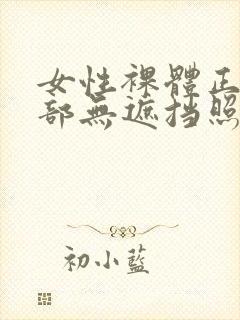 女性裸體正
部無遮挡照
初小藍